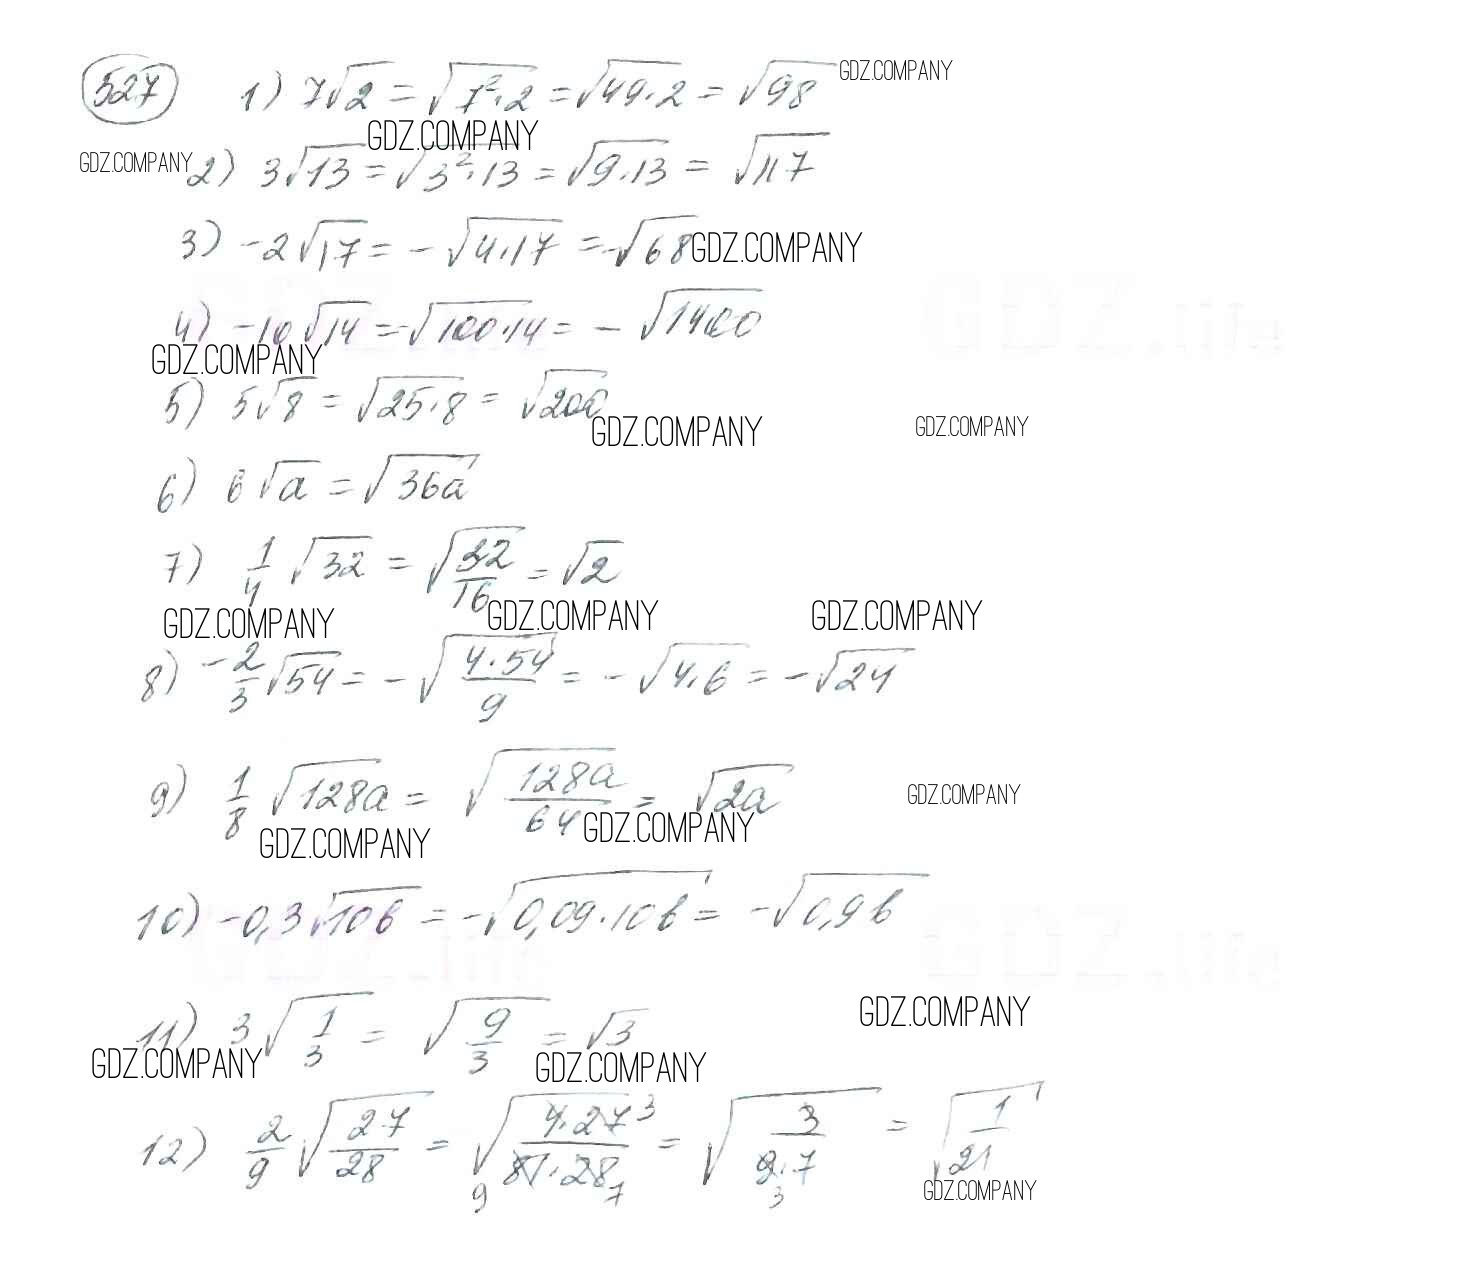 527 1) 7√2 = √(7²·2) = √(49·2) = √98 GDZ.COMPANY
GDZ.COMPANY
GDZ.COMPANY 2) 3√13 = √(3²·13) = √(9·13) = √117
3) -2√17 = -√(4·17) = -√68 GDZ.COMPANY
GDZ.life GDZ.life
4) -10√14 = -√(100·14) = -√1400
GDZ.COMPANY
5) 5√8 = √(25·8) = √200
GDZ.COMPANY GDZ.COMPANY
6) 6√a = √(36a)
7) 1/4 √32 = √(32/16) = √2
GDZ.COMPANY GDZ.COMPANY GDZ.COMPANY
8) -2/3 √54 = -√(4·54/9) = -√(4·6) = -√24
9) 1/8 √(128a) = √(128a/64) = √(2a) GDZ.COMPANY
GDZ.COMPANY GDZ.COMPANY
10) -0,3√(10b) = -√(0,09·10b) = -√(0,9b)
GDZ.life GDZ.life
11) 3√(1/3) = √(9/3) = √3 GDZ.COMPANY
GDZ.COMPANY GDZ.COMPANY
12) 2/9 √(27/28) = √(4·27 3/81·28 9 7) = √(3/9·7 3) = √(1/21)
GDZ.COMPANY